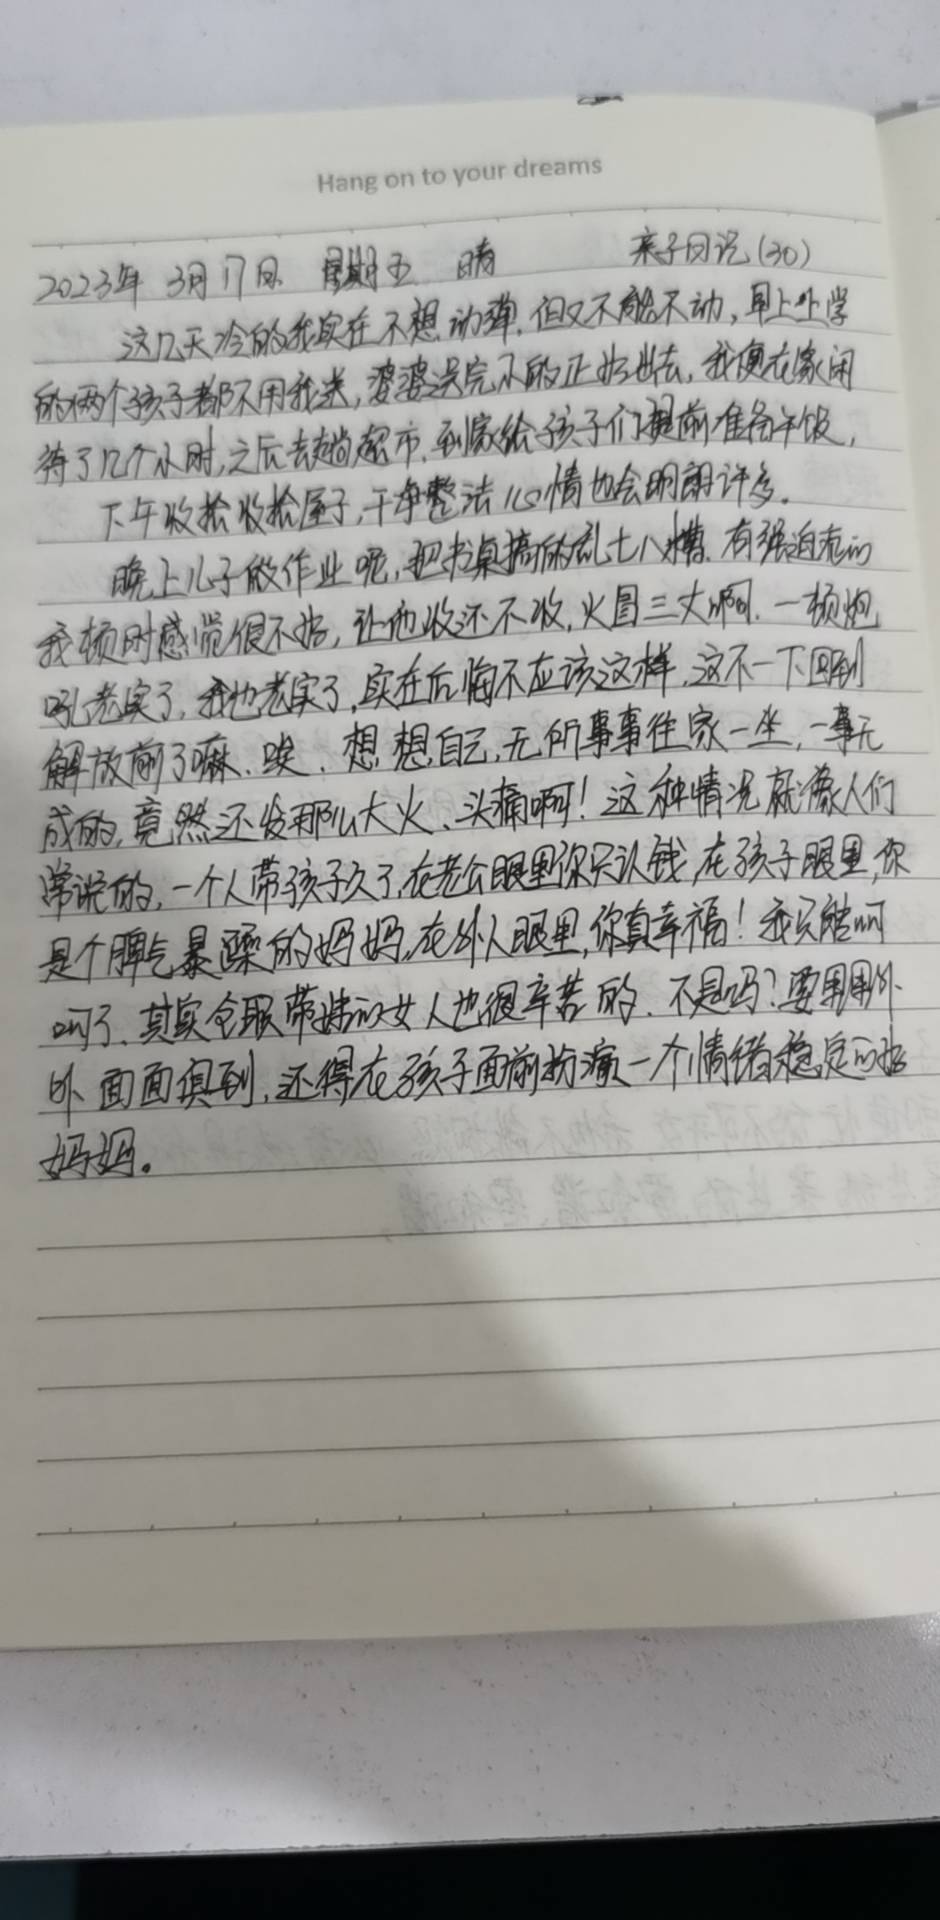 Hang on to your dreams
2023年 3月17日 星期五 晴 亲子日记(30)
这几天冷的我实在不想动弹.但又不能不动,早上上学
的两个孩子都不用我送,婆婆送完小的正好出去,我便在家闲
待了几个小时,之后去趟超市.到家给孩子们提前准备午饭,
下午收拾收拾屋子,干净整洁心情也会明朗许多。
晚上儿子做作业呢,把书桌搞的乱七八糟.有强迫症的
我顿时感觉很不好,让他收还不收,火冒三丈啊.一顿炮
吼老实了,我也老实了,实在后悔不应该这样,这不一下回到
解放前了嘛、唉、想想自己,无所事事往家一坐,一事无
成的,竟然还发那么大火、头痛啊!这种情况就像人们
常说的,一个人带孩子久了,在老公眼里你只认钱,在孩子眼里,你
是个脾气暴躁的妈妈,在外人眼里,你真幸福!我只能呵
呵了、其实全职带娃的女人也很辛苦的、不是吗?要里里外
外面面俱到,还得在孩子面前扮演一个情绪稳定的好
妈妈。